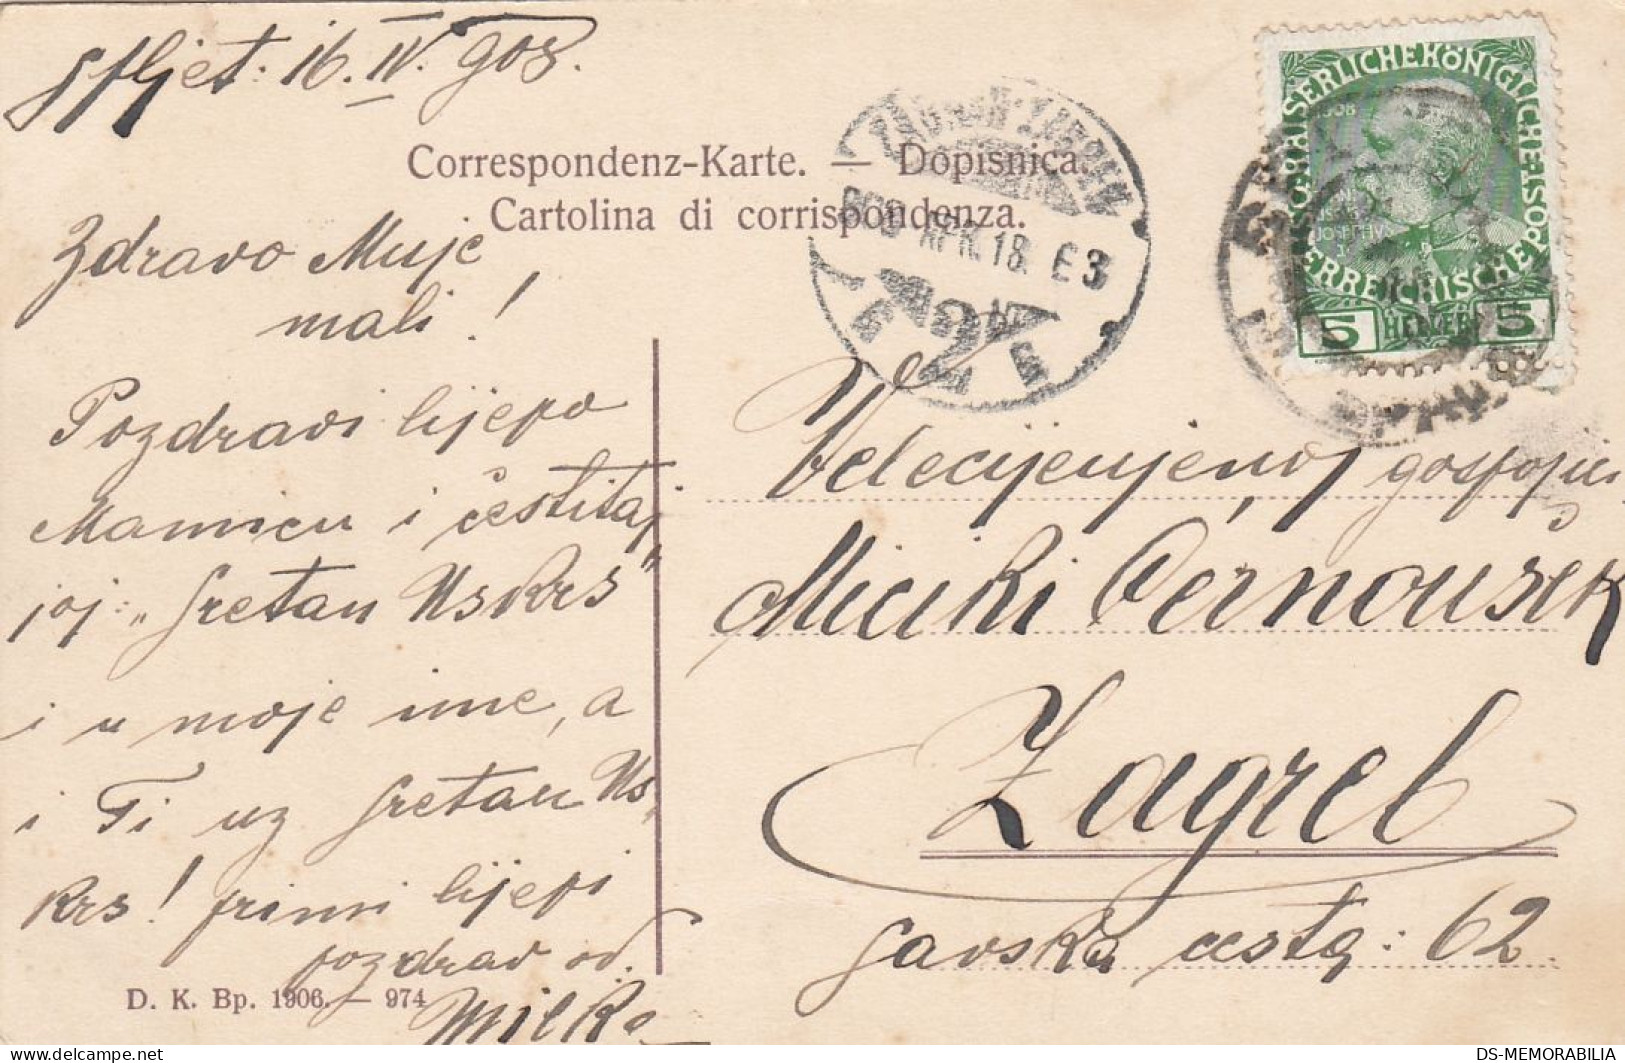 Spljet: 16. IV. 908.
Correspondenz-Karte. — Dopisnica.
Cartolina di corrispondenza.
Zdravo Muje
mali!
Pozdravi lijepo
Mamicu i čestitaj
joj: „Sretan Uskrs"
i u moje ime, a
i Ti uz sretan Us-
krs! primi lijepi
pozdrav od.
Milke
D. K. Bp. 1906. — 974
KAISERLICHE KÖNIGLICHE
ÖSTERREICHISCHE
1908
5 HELLER 5
APR. 18. E3
2
Velecijenjenoj gospojici
Miciki Černoušek
Zagreb
Savska cesta: 62.
DS-MEMORABILIA